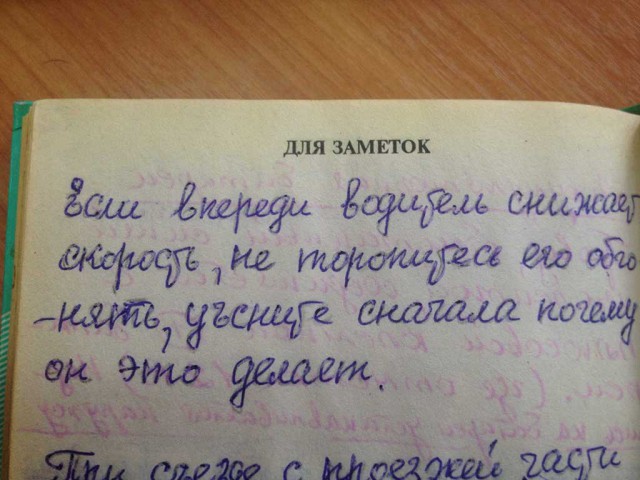 ДЛЯ ЗАМЕТОК
Если впереди водитель снижает
скорость, не торопитесь его обго
-нять, уъсните сначала почему
он это делает.
При съезде с проезжей части